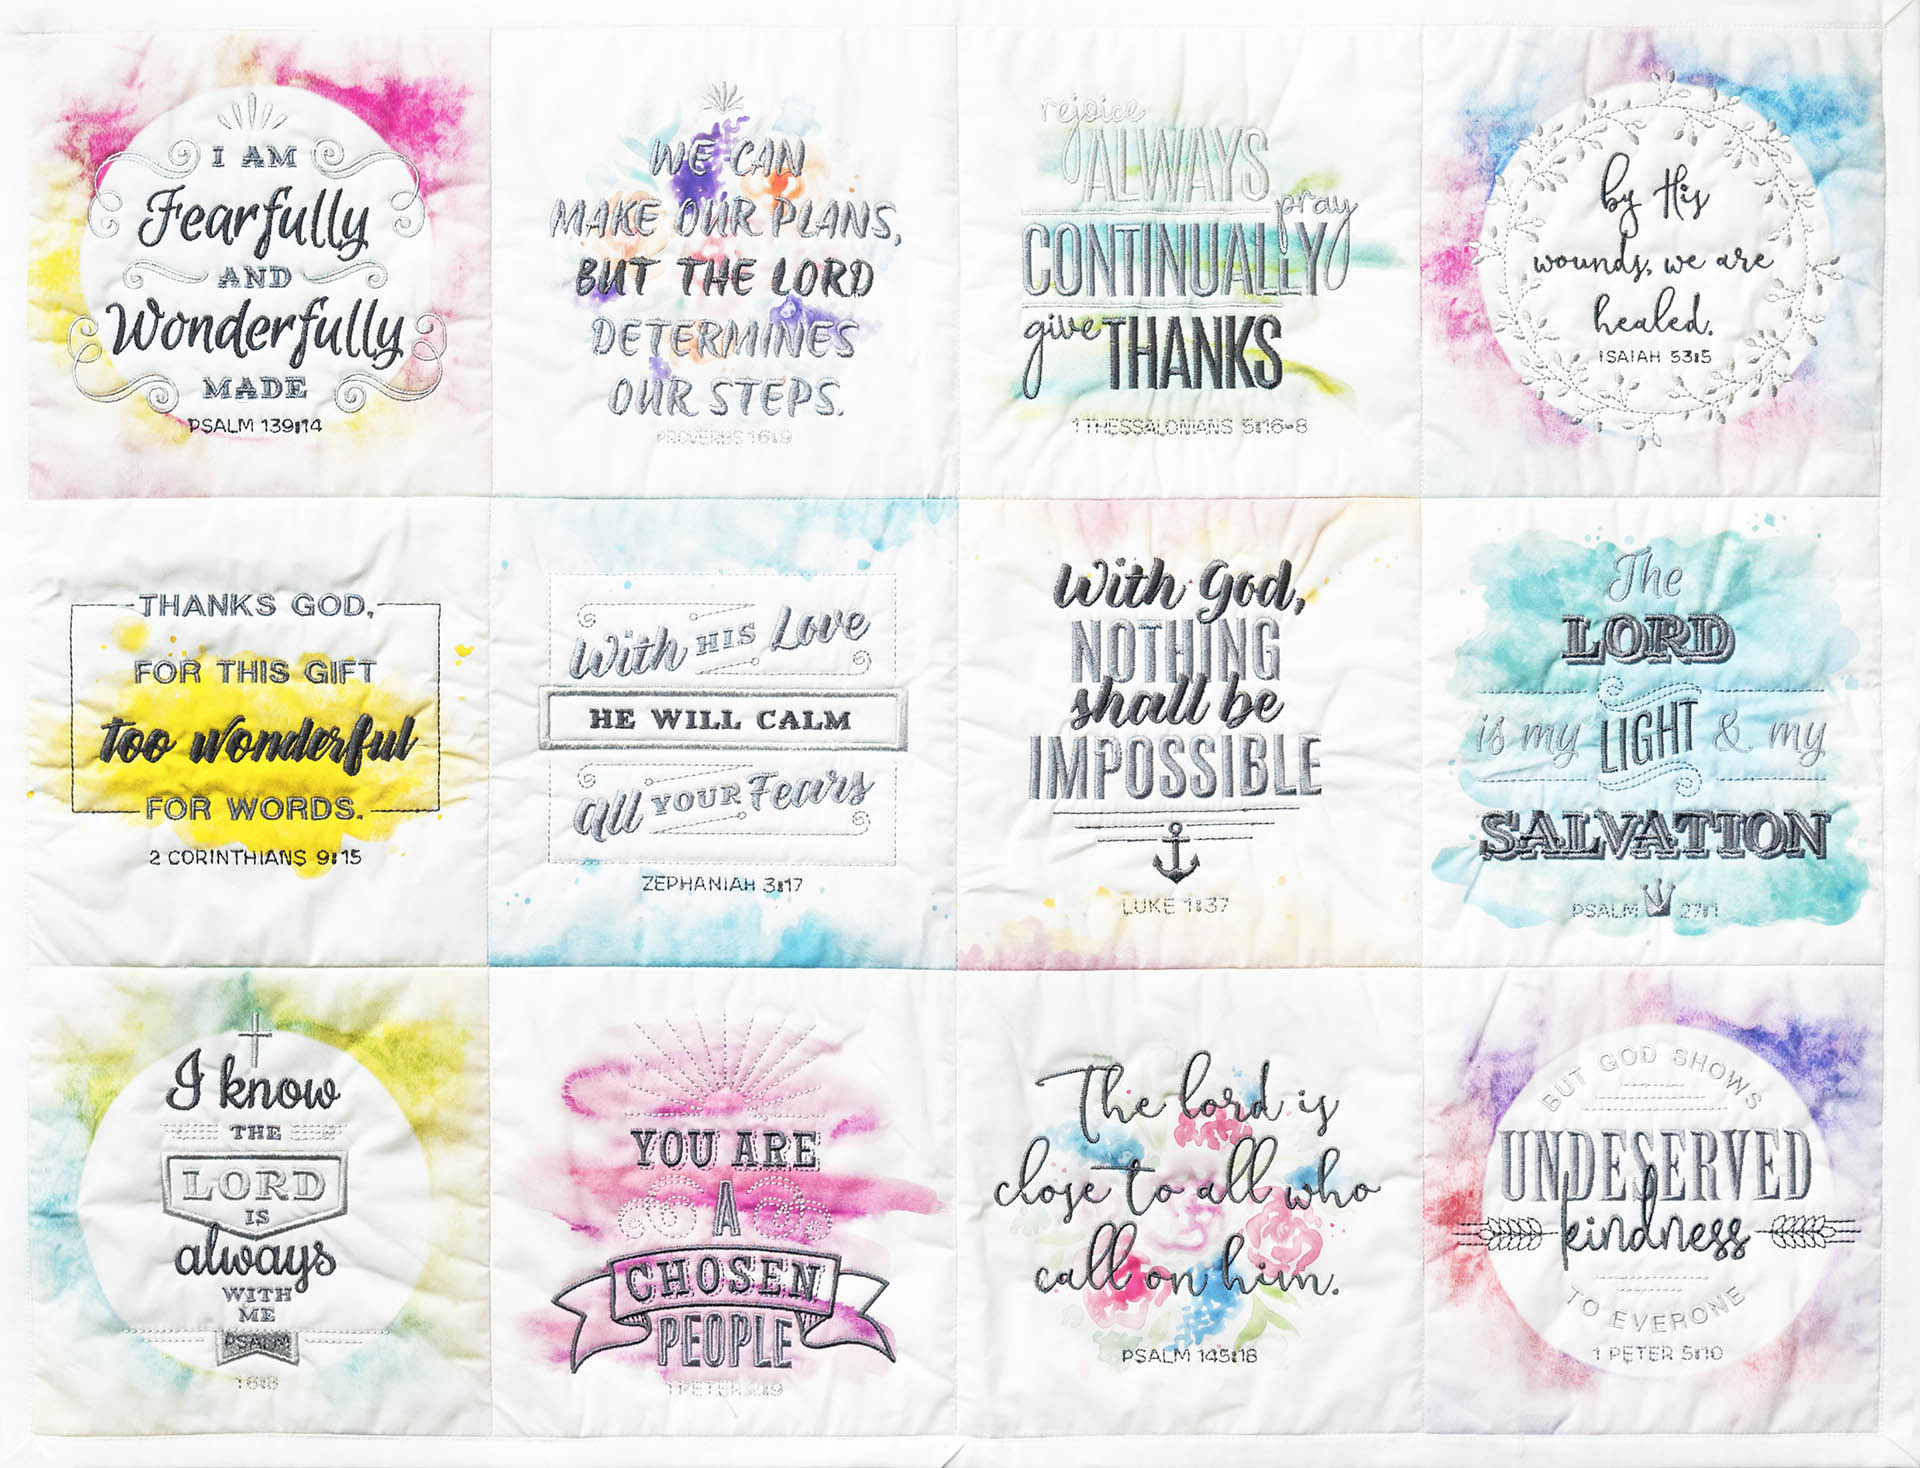 I AM
Fearfully
AND
Wonderfully
MADE
PSALM 139:14
WE CAN
MAKE OUR PLANS,
BUT THE LORD
DETERMINES
OUR STEPS.
PROVERBS 16:9
rejoice
ALWAYS
pray
CONTINUALLY
give THANKS
1 THESSALONIANS 5:16-8
by His
wounds, we are
healed.
ISAIAH 53:5
THANKS GOD,
FOR THIS GIFT
too wonderful
FOR WORDS.
2 CORINTHIANS 9:15
With HIS Love
HE WILL CALM
all YOUR Fears
ZEPHANIAH 3:17
With God,
NOTHING
shall be
IMPOSSIBLE
LUKE 1:37
The
LORD
is my LIGHT & my
SALVATION
PSALM 27:1
I know
THE
LORD
IS
always
WITH
ME
PSALM
16:8
YOU ARE
A
CHOSEN
PEOPLE
1 PETER 2:9
The lord is
close to all who
call on him.
PSALM 145:18
BUT GOD SHOWS
UNDESERVED
kindness
TO EVERYONE
1 PETER 5:10